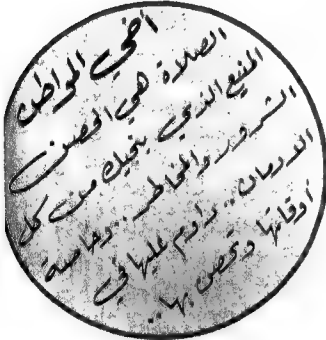 أخي المواطن
الصلاة هي الحصن
المنيع الذي ينجيك من كل
الشرور والمخاطر .. وخاصة
الدرسان .. داوم عليها في
أوقاتها وتحصن بها ..